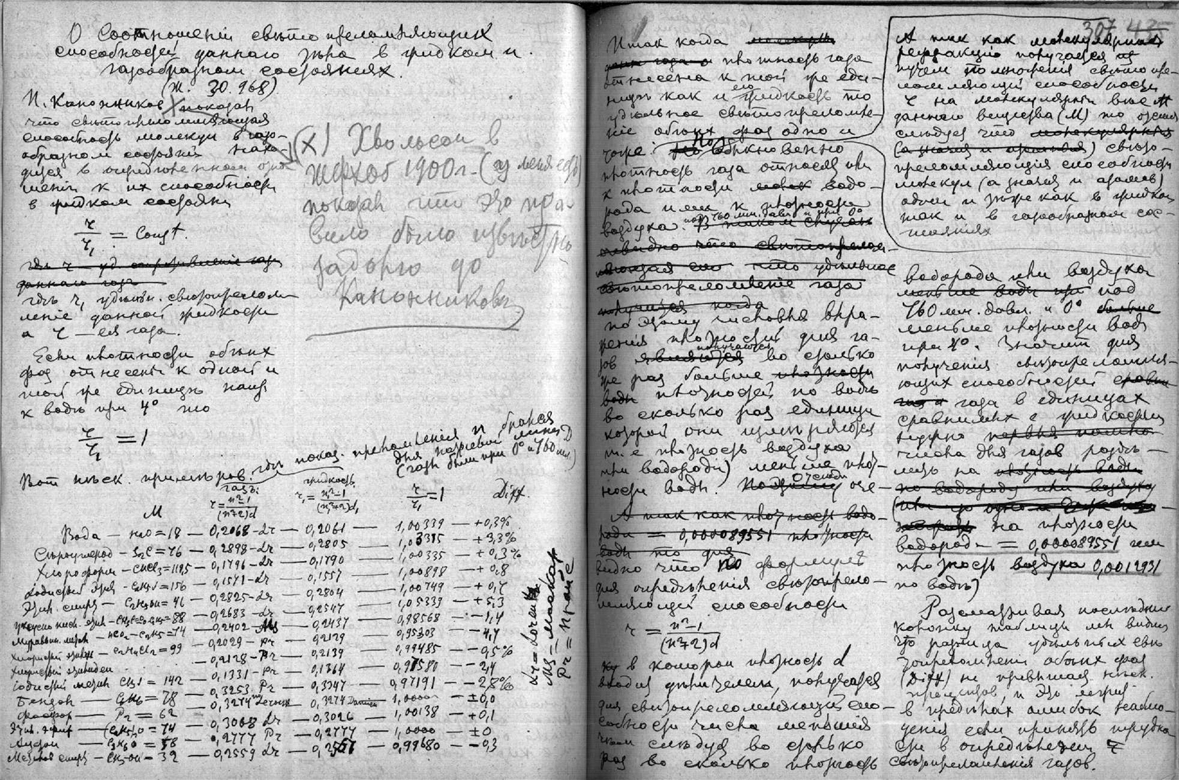 О Соотношении свѣтопреломляющих
способностей даннаго тѣла в жидком и
газообразном состояниях.
(ж. 30. 968)
И. Канонников показал
что свѣтопреломляющая
способность молекул в газо-
образном состоянии нахо-
дится в опредѣленном отно-
шении к их способности
в жидком состоянии
r/r₁ = Const.
гдѣ r уд. светопреломление газа
даннаго газа
гдѣ r₁ удѣльн. свѣтопрелом-
ление данной жидкости
а r — ея газа.
Если плотности обѣих
фаз отнесены к одной и
той же единицѣ напр
к водѣ при 4° то
r/r₁ = 1
(x) Хвольсон в
ЖРХОб 1900 г. (у меня есть)
показал что это пра-
вило было извѣстно
задолго до
Канонникова
Вот нѣск. примѣров. гдѣ показ. преломления n брался
для натровой линии D
(газы были при 0° и 760 мм)
M газы r = n²-1/(n²+2)d жидкость r₁ = n²-1/(n²+2)d r/r₁ = 1 Diff.
Вода — H₂O = 18 — 0,2068 - Lr — 0,2061 — 1,00339 — +0,3%
Сѣроуглерод — S₂C = 76 — 0,2898 - Lr — 0,2805 — 1,03395 — +3,3%
Хлороформ — CHCl₃ = 119,5 — 0,1796 - Lr — 0,1790 — 1,00335 — +0,3%
Іодистый Этил — C₂H₅I = 156 — 0,1571 - Lr — 0,1557 — 1,00898 — +0,8
Этил. спирт — C₂H₅OH = 46 — 0,2825 - Lr — 0,2804 — 1,00749 — +0,7
0,2683 - Lr — 0,2547 — 1,05339 — +5,3
0,2402 - Ms — 0,2437 — 0,98568 — -1,4
0,2029 - Pr — 0,2129 — 0,95303 — -4,7
0,2128 - Pr — 0,2139 — 0,99485 — -0,5%
Іодистый метил CH₃I = 142 — 0,1331 - Pr — 0,1364 — 0,97580 — -2,4
Бензол — C₆H₆ = 78 — 0,3253 - Pr — 0,3347 — 0,97191 — -2,8%
Фосфор — P₂ = 62 — 0,3274 — 0,3274 — 1,0000 — ±0,0
0,3068 Lr — 0,3026 — 1,00138 — +0,1
Ацетон — C₃H₆O = 58 — 0,2777 Pr — 0,2777 — 1,0000 — ±0
Метилов. спирт — CH₃OH = 32 — 0,2559 Lr — 0,2567 — 0,99680 — -0,3
Lr = Lorentz
Ms = Маскар
Pr = Прейс
367 43
Итак когда
плотность газа
отнесена к той же еди-
ницѣ как и его жидкость то
удѣльное свѣтопреломле-
ние обѣих фаз одно и
тоже. Но обыкновенно
плотность газа относят или
к плотности водо-
рода или к плотности
воздуха. при 760 мм. давл и при 0°
что удѣльное
свѣтопреломление газа
получится когда
по этому числовыя выра-
жения плотностей для га-
зов получаются во столько
же раз больше
плотностей по водѣ
во сколько раз единица
которой они измѣряются
т.е плотность воздуха
(или водорода) меньше плот-
ности воды. Отсюда оче-
А так как плотность водо-
рода = 0,000089551 плотности
воды то для
видно что по формулѣ
для опредѣления свѣтопрело-
мляющей способности
r = n²-1/(n²+2)d
в котором плотность d
входит дѣлителем, получатся
для свѣтопреломляющей спо-
собности числа меньшия
чѣм слѣдует во столько
раз во сколько плотность
А так как молекулярная
рефракция получается из
путем помножения свѣтопре-
ломляющей способности
r на молекулярный вѣс M
даннаго вещества (M) то отсюда
слѣдует что
(а значит и атомная) свѣто-
преломляющая способность
молекул (а значит и атомов)
одна и таже как в жидком
так и в газообразном сос-
тояниях
водорода или воздуха
под
760 мм. давл. и 0°
меньше плотности воды
при 4°. Значит для
получения свѣтопреломля-
ющих способностей
газа в единицах
сравнимых с жидкостью
нужно
числа для газов раздѣ-
лить на
на плотность
водорода = 0,000089551 или
плотность воздуха 0,0012931
по водѣ)
Разсматривая послѣднюю
колонку таблицы мы видим
что разница удѣльных свѣ-
топреломлений обѣих фаз
(Diff) не превышает нѣск.
процентов, и это лежит
в предѣлах ошибок наблю-
дения если принять трудно-
сти в опредѣлении r
свѣтопреломления газов.